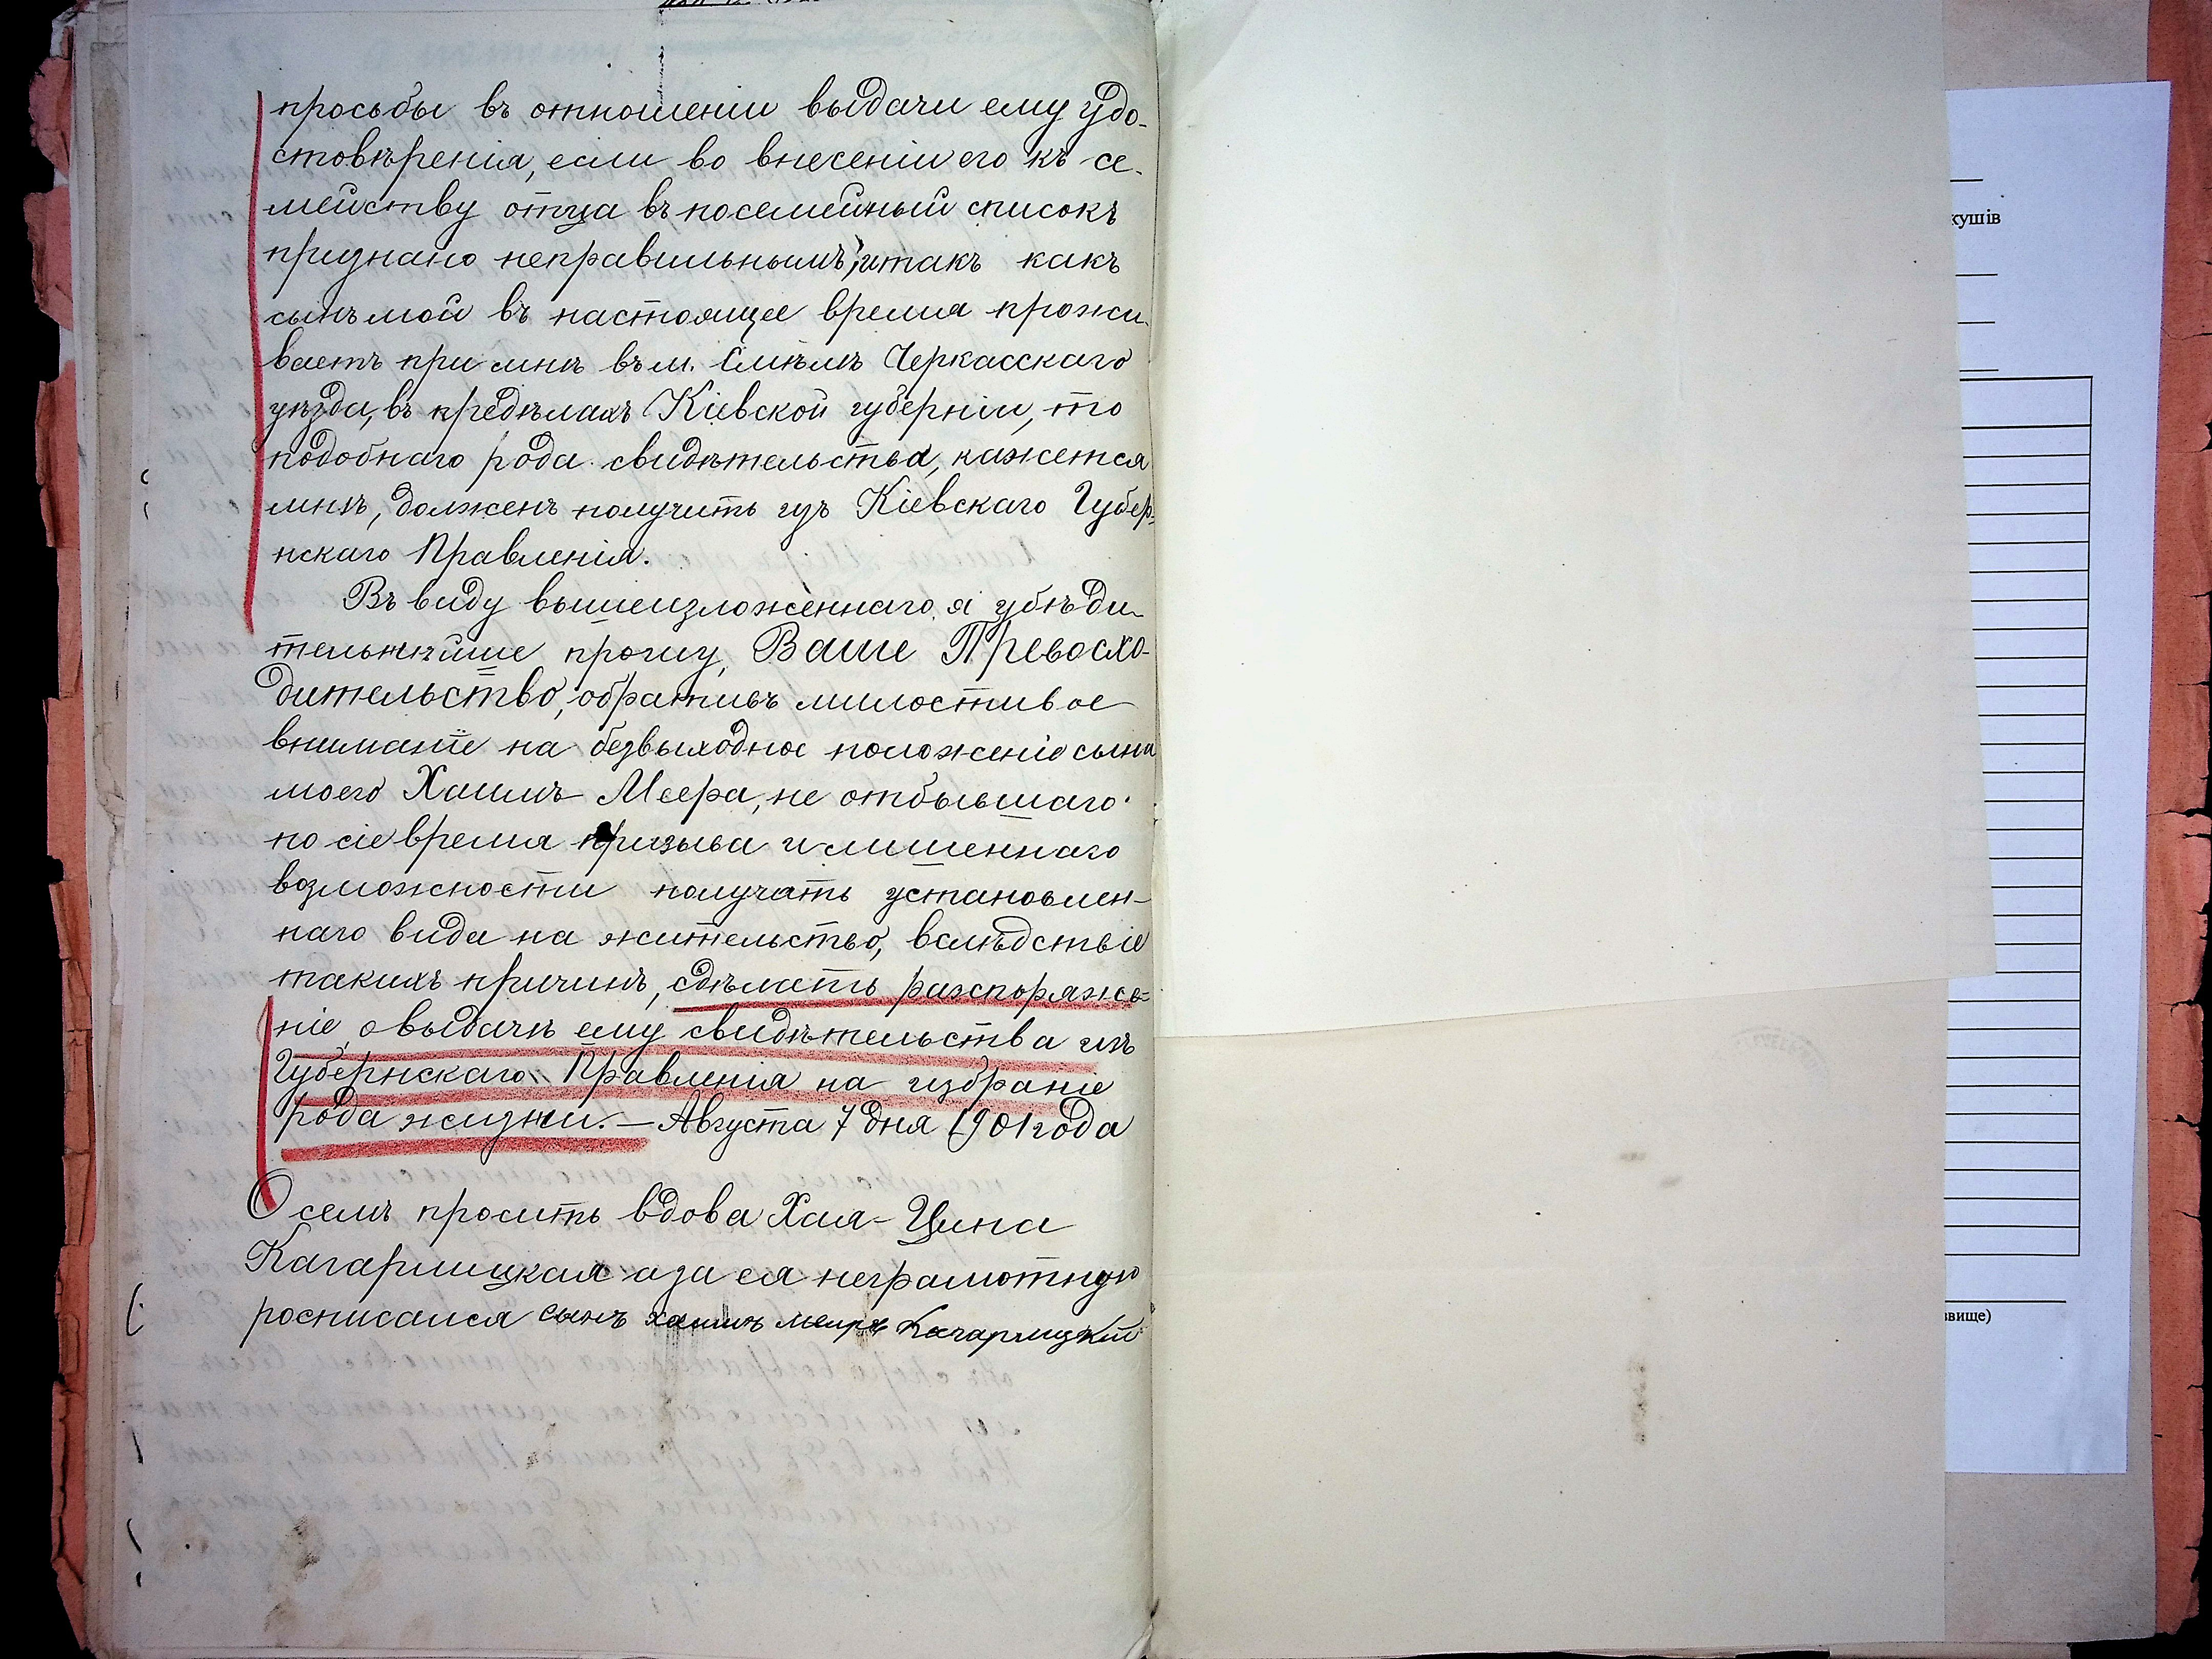 просьбы въ отношеніи выдачи ему удо-
стовѣренія, если во внесеніи его къ се-
мейству отца въ посемейный списокъ
признано неправильнымъ, итакъ какъ
сынъ мой въ настоящее время прожи-
ваетъ при мнѣ въ м. Смѣлѣ Черкасскаго
уѣзда, въ предѣлахъ Кіевской губерніи, то
подобнаго рода свидѣтельства, кажется
мнѣ, долженъ получить изъ Кіевскаго Губер-
нскаго Правленія.
Въ виду вышеизложеннаго я убѣди-
тельнѣйше прошу, Ваше Превосхо-
дительство, обративъ милостивое
вниманіе на безвыходное положеніе сына
моего Хаимъ Меера, не отбывшаго
по сіе время призыва и лишеннаго
возможности получать установлен-
наго вида на жительство, вслѣдствіе
такихъ причинъ, сдѣлать распоряже-
ніе о выдачѣ ему свидѣтельства изъ
Губернскаго Правленія на избраніе
рода жизни. — Августа 7 дня 1901 года
О семъ проситъ вдова Хая-Цина
Кагарлицкая а за ея неграмотную
росписался сынъ хаимъ меиръ Кагарлицкій
кушів
звище)